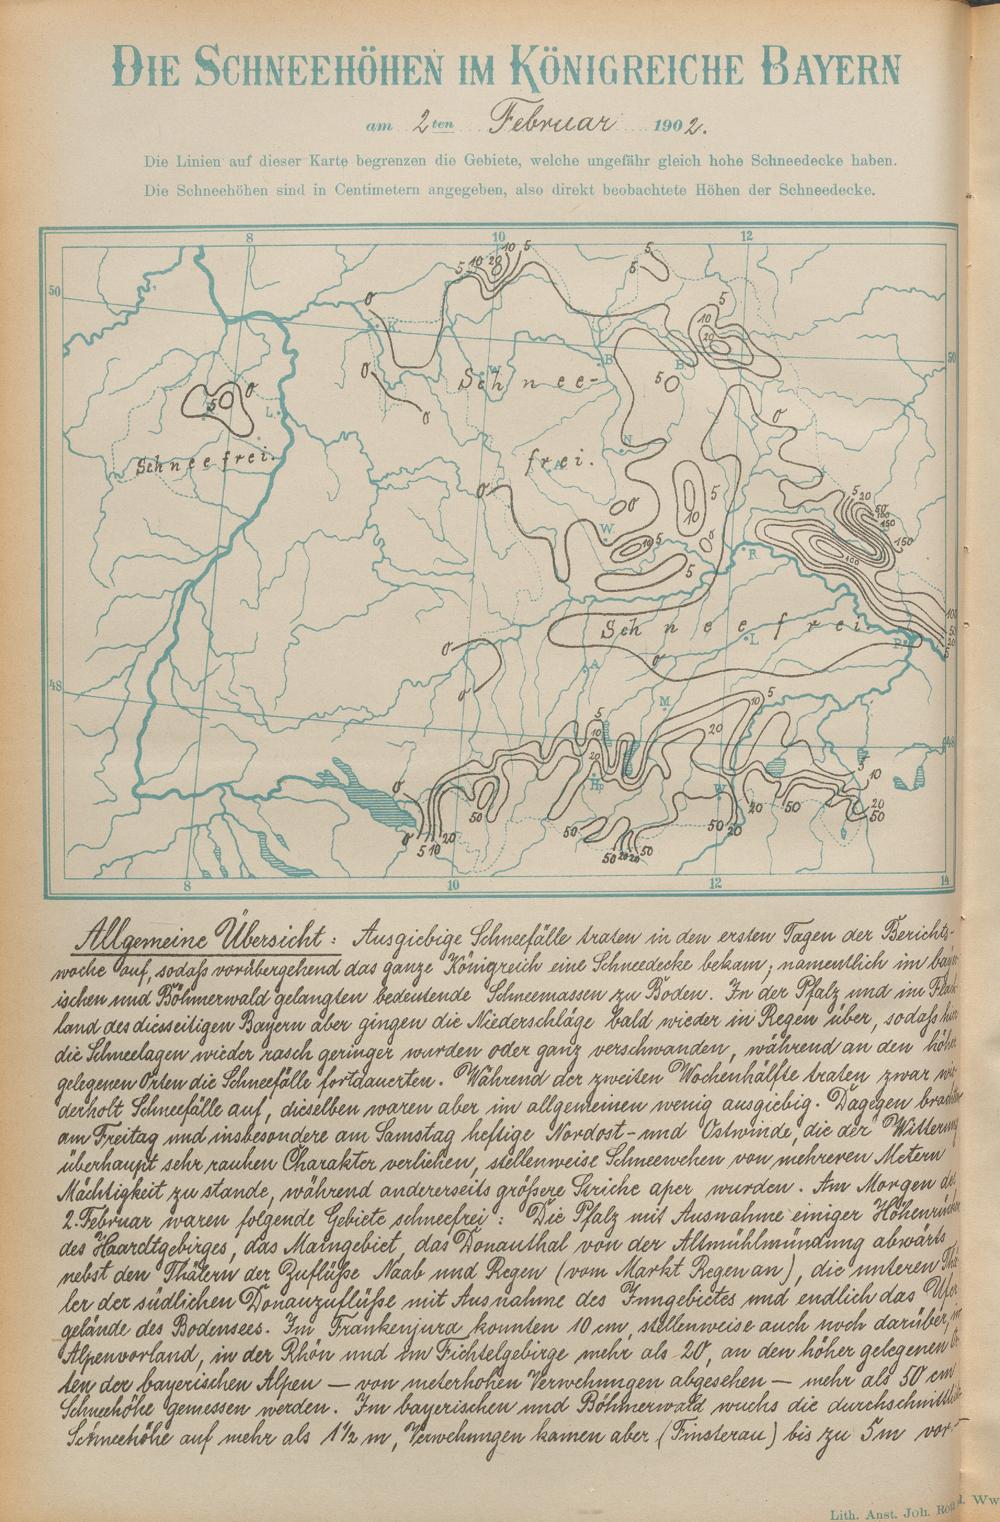 DIE SCHNEEHÖHEN IM KÖNIGREICHE BAYERN
am 2ten Februar 1902.
Die Linien auf dieser Karte begrenzen die Gebiete, welche ungefähr gleich hohe Schneedecke haben.
Die Schneehöhen sind in Centimetern angegeben, also direkt beobachtete Höhen der Schneedecke.
8 10 12
5 10 20 10 5 5 5
50
0 5 10 20
K
50
0 B B
Schnee-
W
5 0
50 0 L 0 0
N
Schneefrei. frei.
0 5 5 20 50 100 150
10
00 W 10 5 0 150
R 100
5
Schneefrei. 100 50 20 5
0 L P
0 A
48
0 M 10 5
5 20
10 48
20 5 10
Hp
0 W 20 50 20 50
50 50 50 20
0 5 10 20 50 20 20 50
8 10 12 14
Allgemeine Übersicht: Ausgiebige Schneefälle traten in den ersten Tagen der Berichts-
woche auf, sodaß vorübergehend das ganze Königreich eine Schneedecke bekam; namentlich im
ischen und Böhmerwald gelangten bedeutende Schneemassen zu Boden. In der Pfalz und im
land des diesseitigen Bayern aber gingen die Niederschläge bald wieder in Regen über, sodaß
die Schneelagen wieder rasch geringer wurden oder ganz verschwanden, während an den
gelegenen Orten die Schneefälle fortdauerten. Während der zweiten Wochenhälfte traten zwar
derholt Schneefälle auf, dieselben waren aber im allgemeinen wenig ausgiebig. Dagegen
am Freitag und insbesondere am Samstag heftige Nordost- und Ostwinde, die der Witterung
überhaupt sehr rauhen Charakter verliehen, stellenweise Schneewehen von mehreren Metern
Mächtigkeit zu stande, während andererseits größere Striche aper wurden. Am Morgen
2. Februar waren folgende Gebiete schneefrei: Die Pfalz mit Ausnahme einiger
des Haardtgebirges, das Maingebiet, das Donauthal von der Altmühlmündung abwärts
nebst den Thälern der Zuflüße Naab und Regen (vom Markt Regen an), die unteren
ler der südlichen Donauzuflüße mit Ausnahme des Inngebietes und endlich das
gelände des Bodensees. Im Frankenjura konnten 10 cm, stellenweise auch noch darüber,
Alpenvorland, in der Rhön und im Fichtelgebirge mehr als 20, an den höher gelegenen
ten der bayerischen Alpen — von meterhohen Verwehungen abgesehen — mehr als 50 cm
Schneehöhe gemessen werden. Im bayerischen und Böhmerwald wuchs die
Schneehöhe auf mehr als 1½ m, Verwehungen kamen aber (Finsterau) bis zu 5m vor
Lith. Anst. Joh.